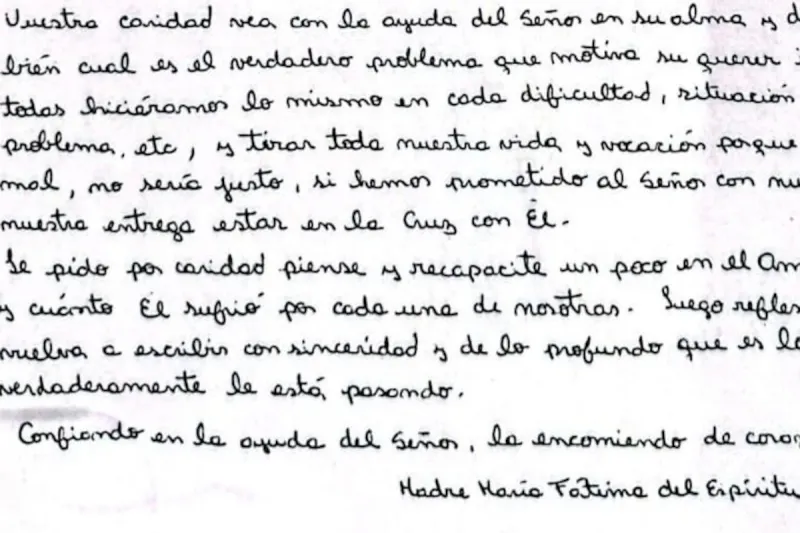 Vuestra caridad vea con la ayuda del Señor en su alma y d
bién cual es el verdadero problema que motiva su querer
todas hiciéramos lo mismo en cada dificultad, situación
problema, etc, y tirar toda nuestra vida y vocación porque
mal, no sería justo, si hemos prometido al Señor con nu
nuestra entrega estar en la Cruz con Él.
Le pido por caridad piense y recapacite un poco en el Am
y cuánto Él sufrió por cada una de nosotras. Luego reflex
vuelva a escribir con sinceridad y de lo profundo que es lo
verdaderamente le está pasando.
Confiando en la ayuda del Señor, la encomiendo de coraz
Madre María Fátima del Espíritu